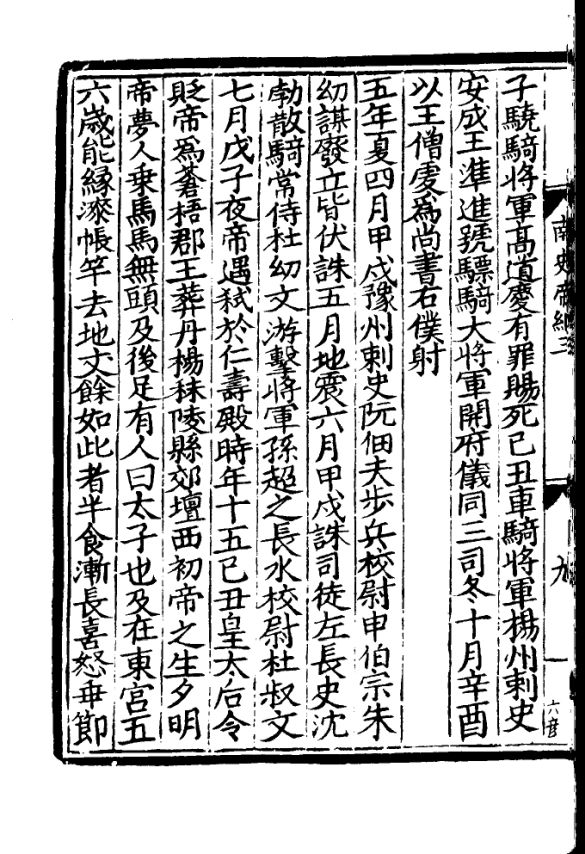 子驍騎將軍高道慶有罪賜死己丑車騎將軍揚州刺史
安成王準進號驃騎大將軍開府儀同三司冬十月辛酉
以王僧虔爲尚書右僕射
五年夏四月甲戌豫州刺史阮佃夫步兵校尉申伯宗朱
幼謀廢立皆伏誅五月地震六月甲戌誅司徒左長史沈
勃散騎常侍杜幼文游擊將軍孫超之長水校尉杜叔文
七月戊子夜帝遇弑於仁壽殿時年十五己丑皇太后令
貶帝爲蒼梧郡王葬丹楊秣陵縣郊壇西初帝之生夕明
帝夢人乗馬馬無頭及後足有人曰太子也及在東宮五
六歲能緣漆帳竿去地丈餘如此者半食漸長喜怒乖節
南史帝紀三
九